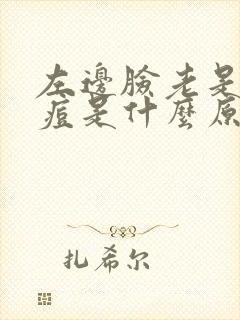 左邊臉老是
痘是什麼原
扎希尔